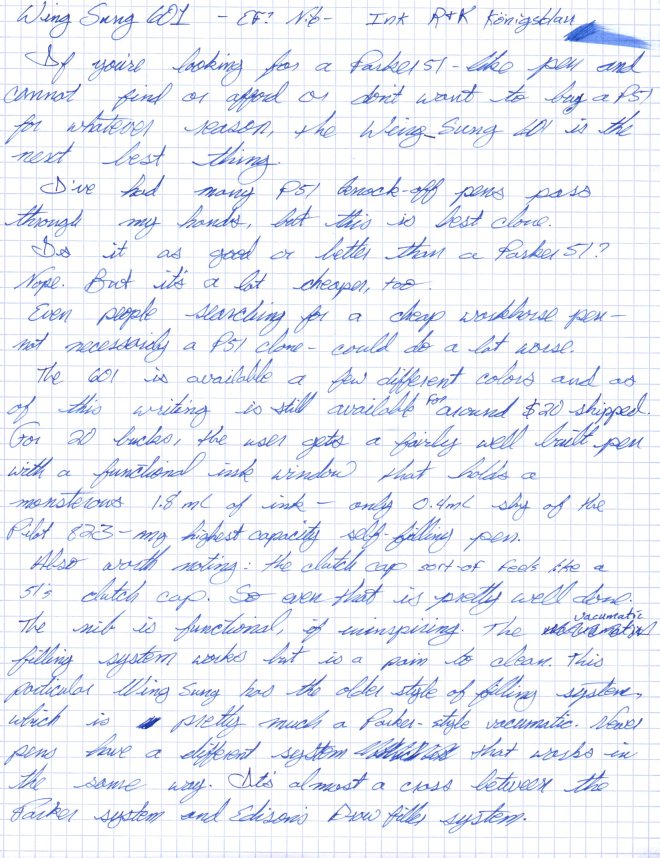 Wing Sung 601 - EF? Nib - Ink R+K Königsblau
If you're looking for a Parker 51-like pen and
cannot find or afford or don't want to buy a P51
for whatever reason, the Wing Sung 601 is the
next best thing.
I've had many P51 knock-off pens pass
through my hands, but this is best clone.
Is it as good or better than a Parker 51?
Nope. But it's a lot cheaper, too.
Even people searching for a cheap workhorse pen-
not necessarily a P51 clone- could do a lot worse.
The 601 is available a few different colors and as
of this writing is still available for around $20 shipped.
For 20 bucks, the user gets a fairly well built pen
with a functional ink window that holds a
monsterous 1.8 mL of ink - only 0.4mL shy of the
Pilot 823 - my highest capacity self-filling pen.
Also worth noting: the clutch cap sort-of feels like a
51's clutch cap. So even that is pretty well done.
The nib is functional, if uninspiring The vacumatic
filling system works but is a pain to clean. This
particular Wing Sung has the older style of filling system,
which is pretty much a Parker-style vacumatic. Newer
pens have a different system that works in
the same way. It's almost a cross between the
Parker system and Edison's Draw filler system.